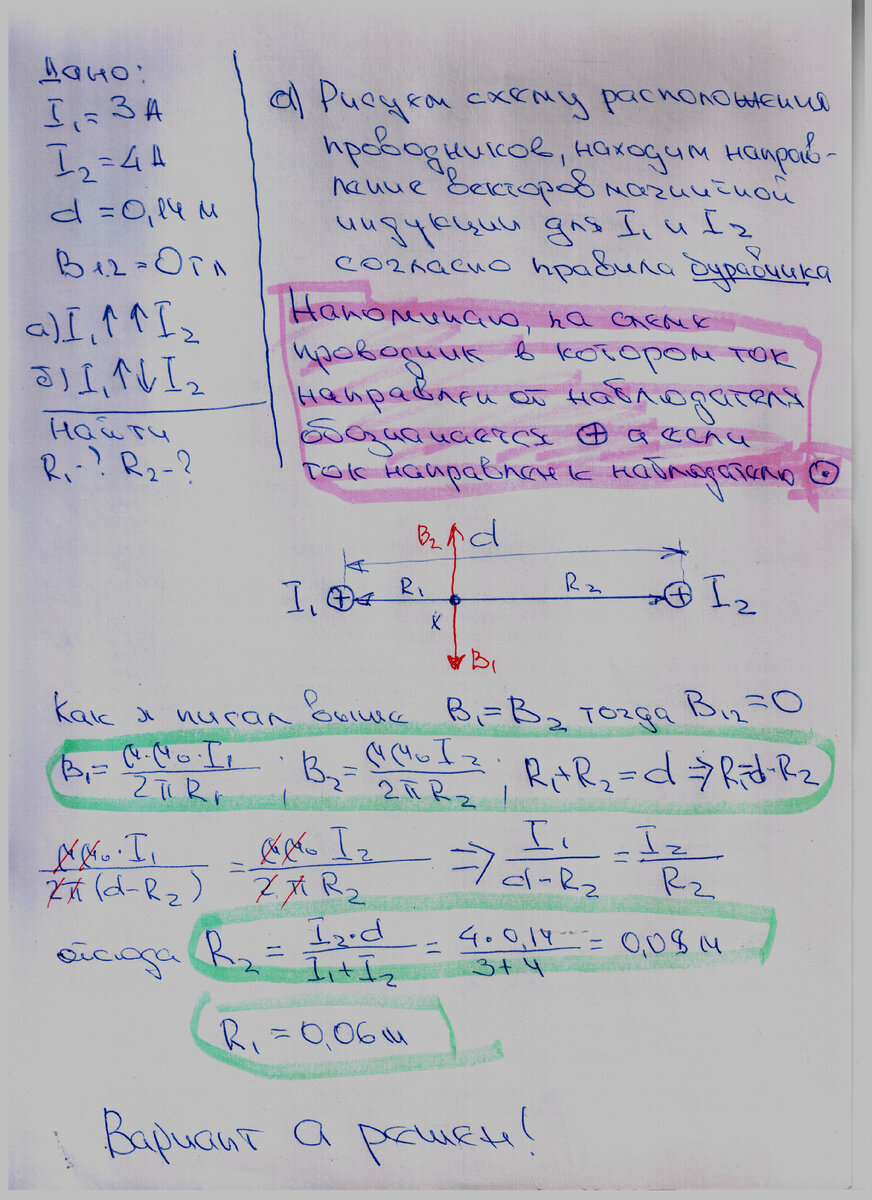 Дано:
I₁ = 3 А
I₂ = 4 А
d = 0,14 м
B₁.₂ = 0 тл
а) I₁ ↑ ↑ I₂
б) I₁ ↑ ↓ I₂
Найти
R₁-? R₂-?
а) Рисуем схему расположения
проводников, находим направ-
ление векторов магнитной
индукции для I₁ и I₂
согласно правила буравчика
Напоминаю, на схеме
проводник в котором ток
направлен от наблюдателя
обозначается ⊕ а если
ток направлен к наблюдателю ⊙
B₂ d
I₁ ⊕ R₁ R₂ ⊕ I₂
x
B₁
Как я писал выше B₁ = B₂ тогда B₁₂ = 0
B₁ = μ·μ₀·I₁ / 2πR₁ ; B₂ = μμ₀I₂ / 2πR₂ ; R₁+R₂ = d ⇒ R₁=d-R₂
μμ₀·I₁ / 2π(d-R₂) = μμ₀ I₂ / 2πR₂ ⇒ I₁ / d-R₂ = I₂ / R₂
отсюда R₂ = I₂·d / I₁+I₂ = 4·0,14 / 3+4 = 0,08 м
R₁ = 0,06 м
Вариант а решен!